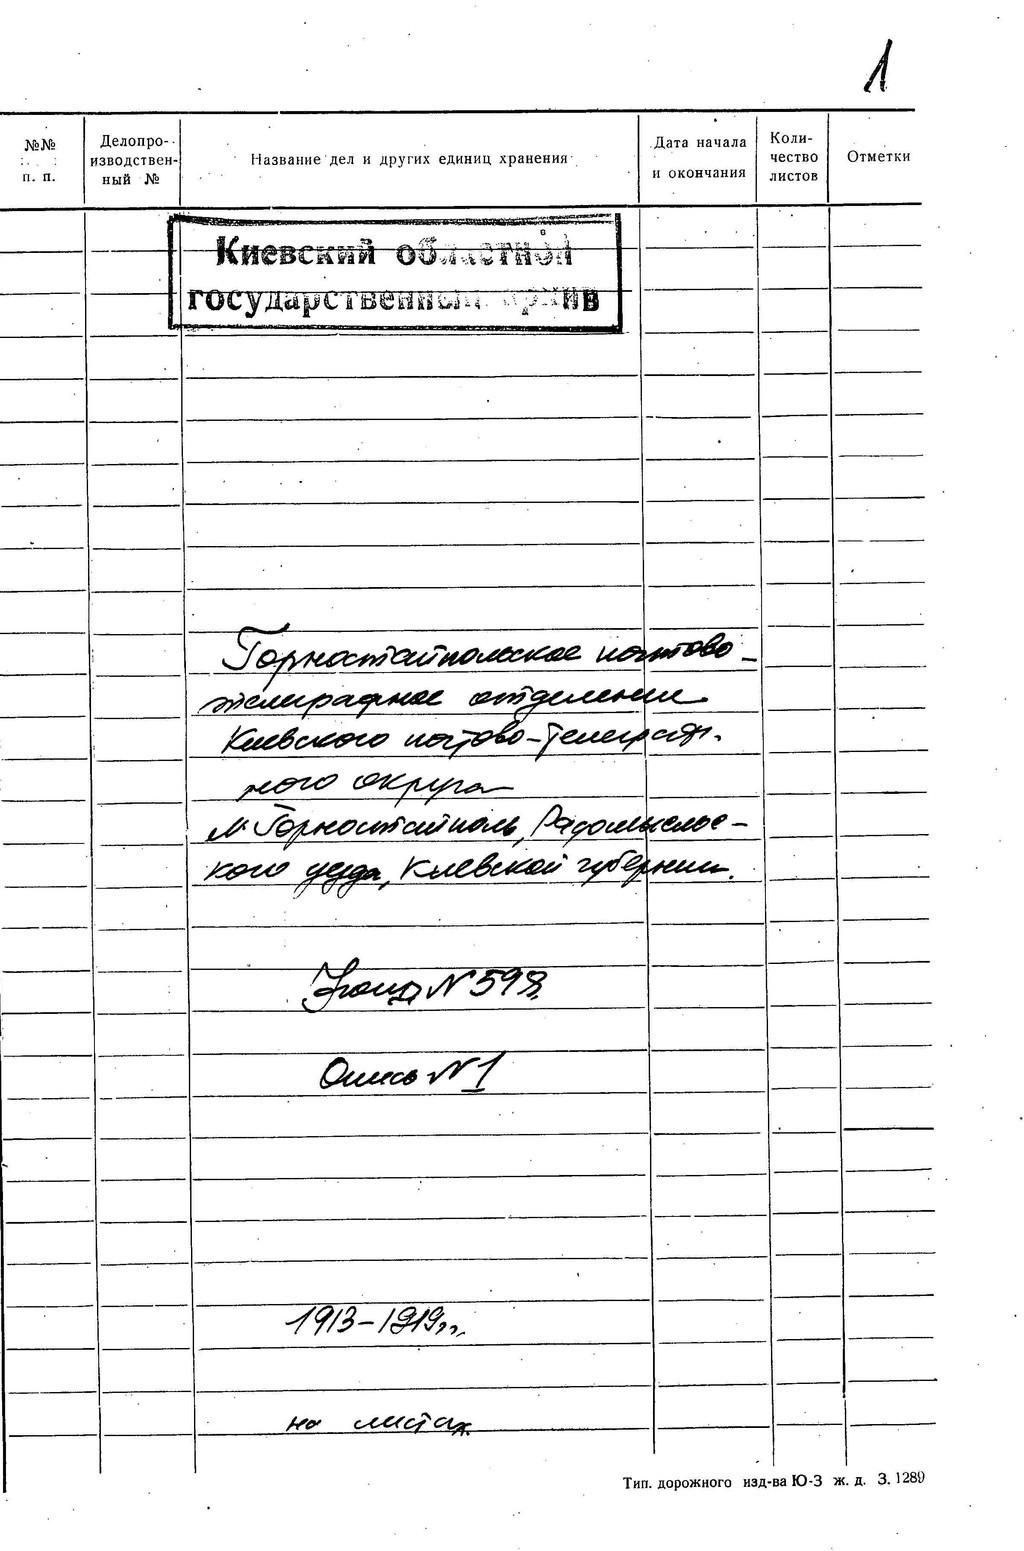 1
№№ п. п.
Делопро-изводствен-ный №
Название дел и других единиц хранения
Дата начала и окончания
Коли-чество листов
Отметки
Киевский областной
государственный архив
Горностайпольское почтово-
телеграфное отделение
Киевского почтово-телеграф-
ного округа
м. Горностайполь, Радомысльс-
кого уезда, Киевской губернии.
Фонд № 598
Опись № 1
1913-1919 гг.
на листах
Тип. дорожного изд-ва Ю-З ж. д. З. 1289